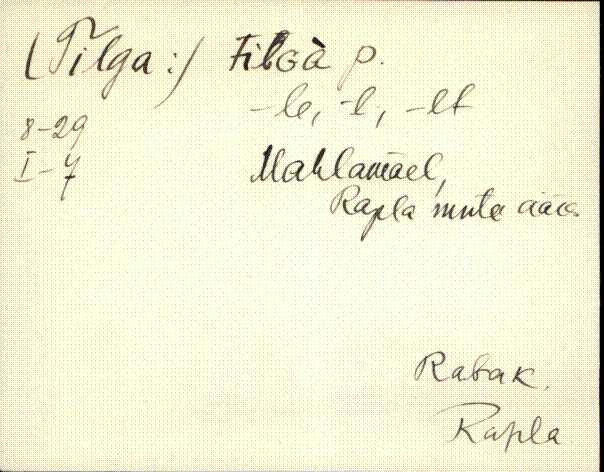 (Tilga:) Tilgà p.
-le, -l, -lt
8-29
I-7
Mahlamäel,
Rapla mnte ääres
Rabak.
Rapla